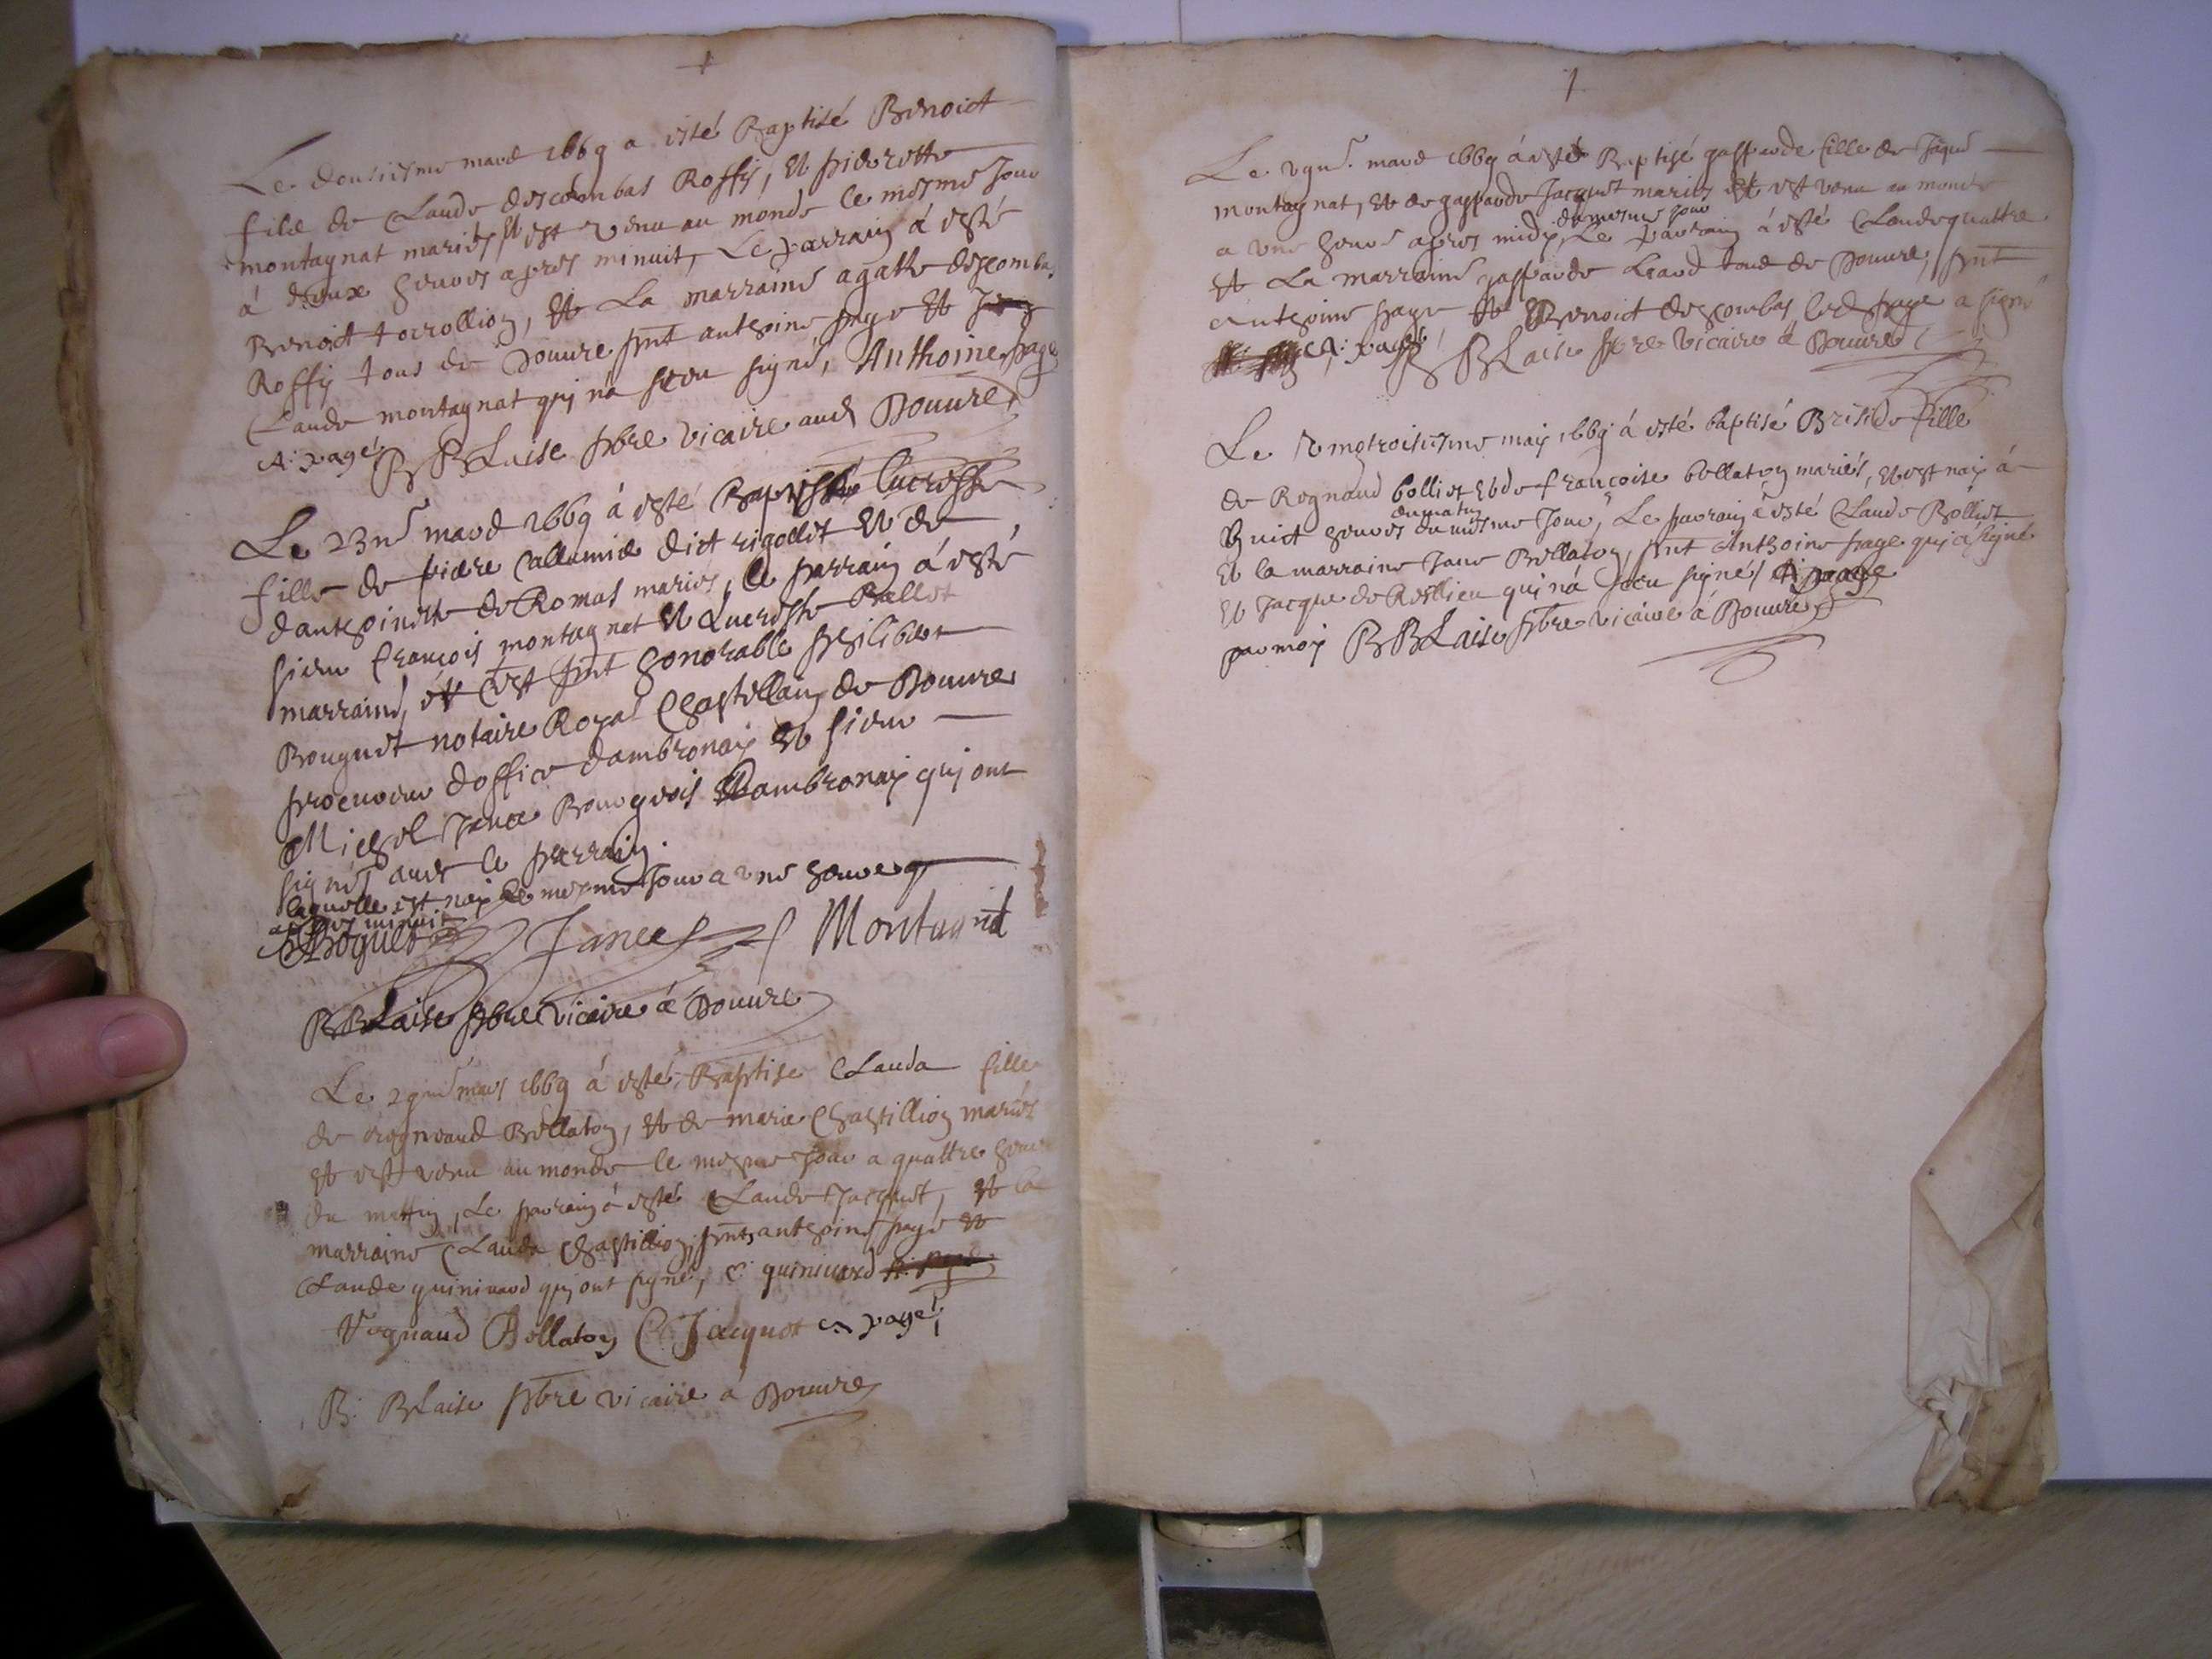 Le dousiesme mard 1669 a esté Baptisé Benoict
filz de Claude descombas Roffy, et pierrette
montagnat mariés et est venu au monde le mesme Jour
á deux heures apres minuit, Le parrain á esté
Benoict torrollion, et La marraine agathe descombas
Roffy tous de Douure, pnt anthoine page et
Claude montagnat qui na sceu signé, Anthoine page
A: pagé B BLaise pbre vicaire aud Douure
Le 23me mard 1669 á esté Baptisé Lucresse
fille de piere Callamid dict rigollet et de
danthoinette de Romas mariés, le parrain á esté
sieur françois montagnat et Lucresse Ballet
marraine, et c'est pnt honorable philibert
Bouguet notaire Royal Chastellain de Douure
procureur doffice dambronay et sieur
Michel Janee Bourgeois dambronay qui ont
signés avec le parrain.
laquelle est nay le mesme Jour a une heure
apres minuit
Boguet Janee Montagnat
B BLaise pbre vicaire á Douure
Le 29me mars 1669 á esté Baptise Clauda fille
de regneaud Bellaton, et de marie Chastillion mariés
et est venu au monde le mesme Jour a quattre heure
du mattin, Le parrain á esté Claude Jacquet, et la
marraine Clauda Chastillion, pnts anthoine page et
Claude guinivard qui ont signé, C: guinivard A: page
Regnaud Bellaton C Jacquet A pagé
B: BLaise pbre vicaire á Douure
1
Le mard 1669 á esté Baptisé gasparde fille de Jaque
montagnat, et de gasparde Jacquet mariés et est venu au monde
du mesme jour
a une heure apres midy, Le parrain á esté Claude quattre
et La marraine gasparde tous de Douure, pnt
Anthoine page et Benoict descombas led page a signé
A: pagé B BLaise pbre vicaire á Douure
Le vingtroisiesme may 1669 á esté baptisé Briside fille
de Regnaud bolliet et de françoise bellaton mariés, et est nay á
du matin
huict heures du mesme Jour, Le parrain á esté Claude Bolliet
et la marraine Jane Bellaton, pnt Anthoine page qui a signé
et Jacque de Rossieu qui ná sceu signé, A page
par moy B BLaise pbre vicaire á Douure